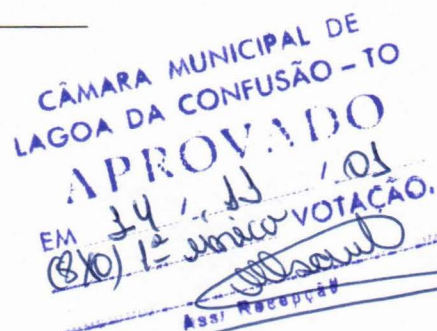 CÂMARA MUNICIPAL DE
LAGOA DA CONFUSÃO - TO
APROVADO
EM 14 / 11 / 01
(8X0) 1ª única VOTAÇÃO.
Ass/ Recepção